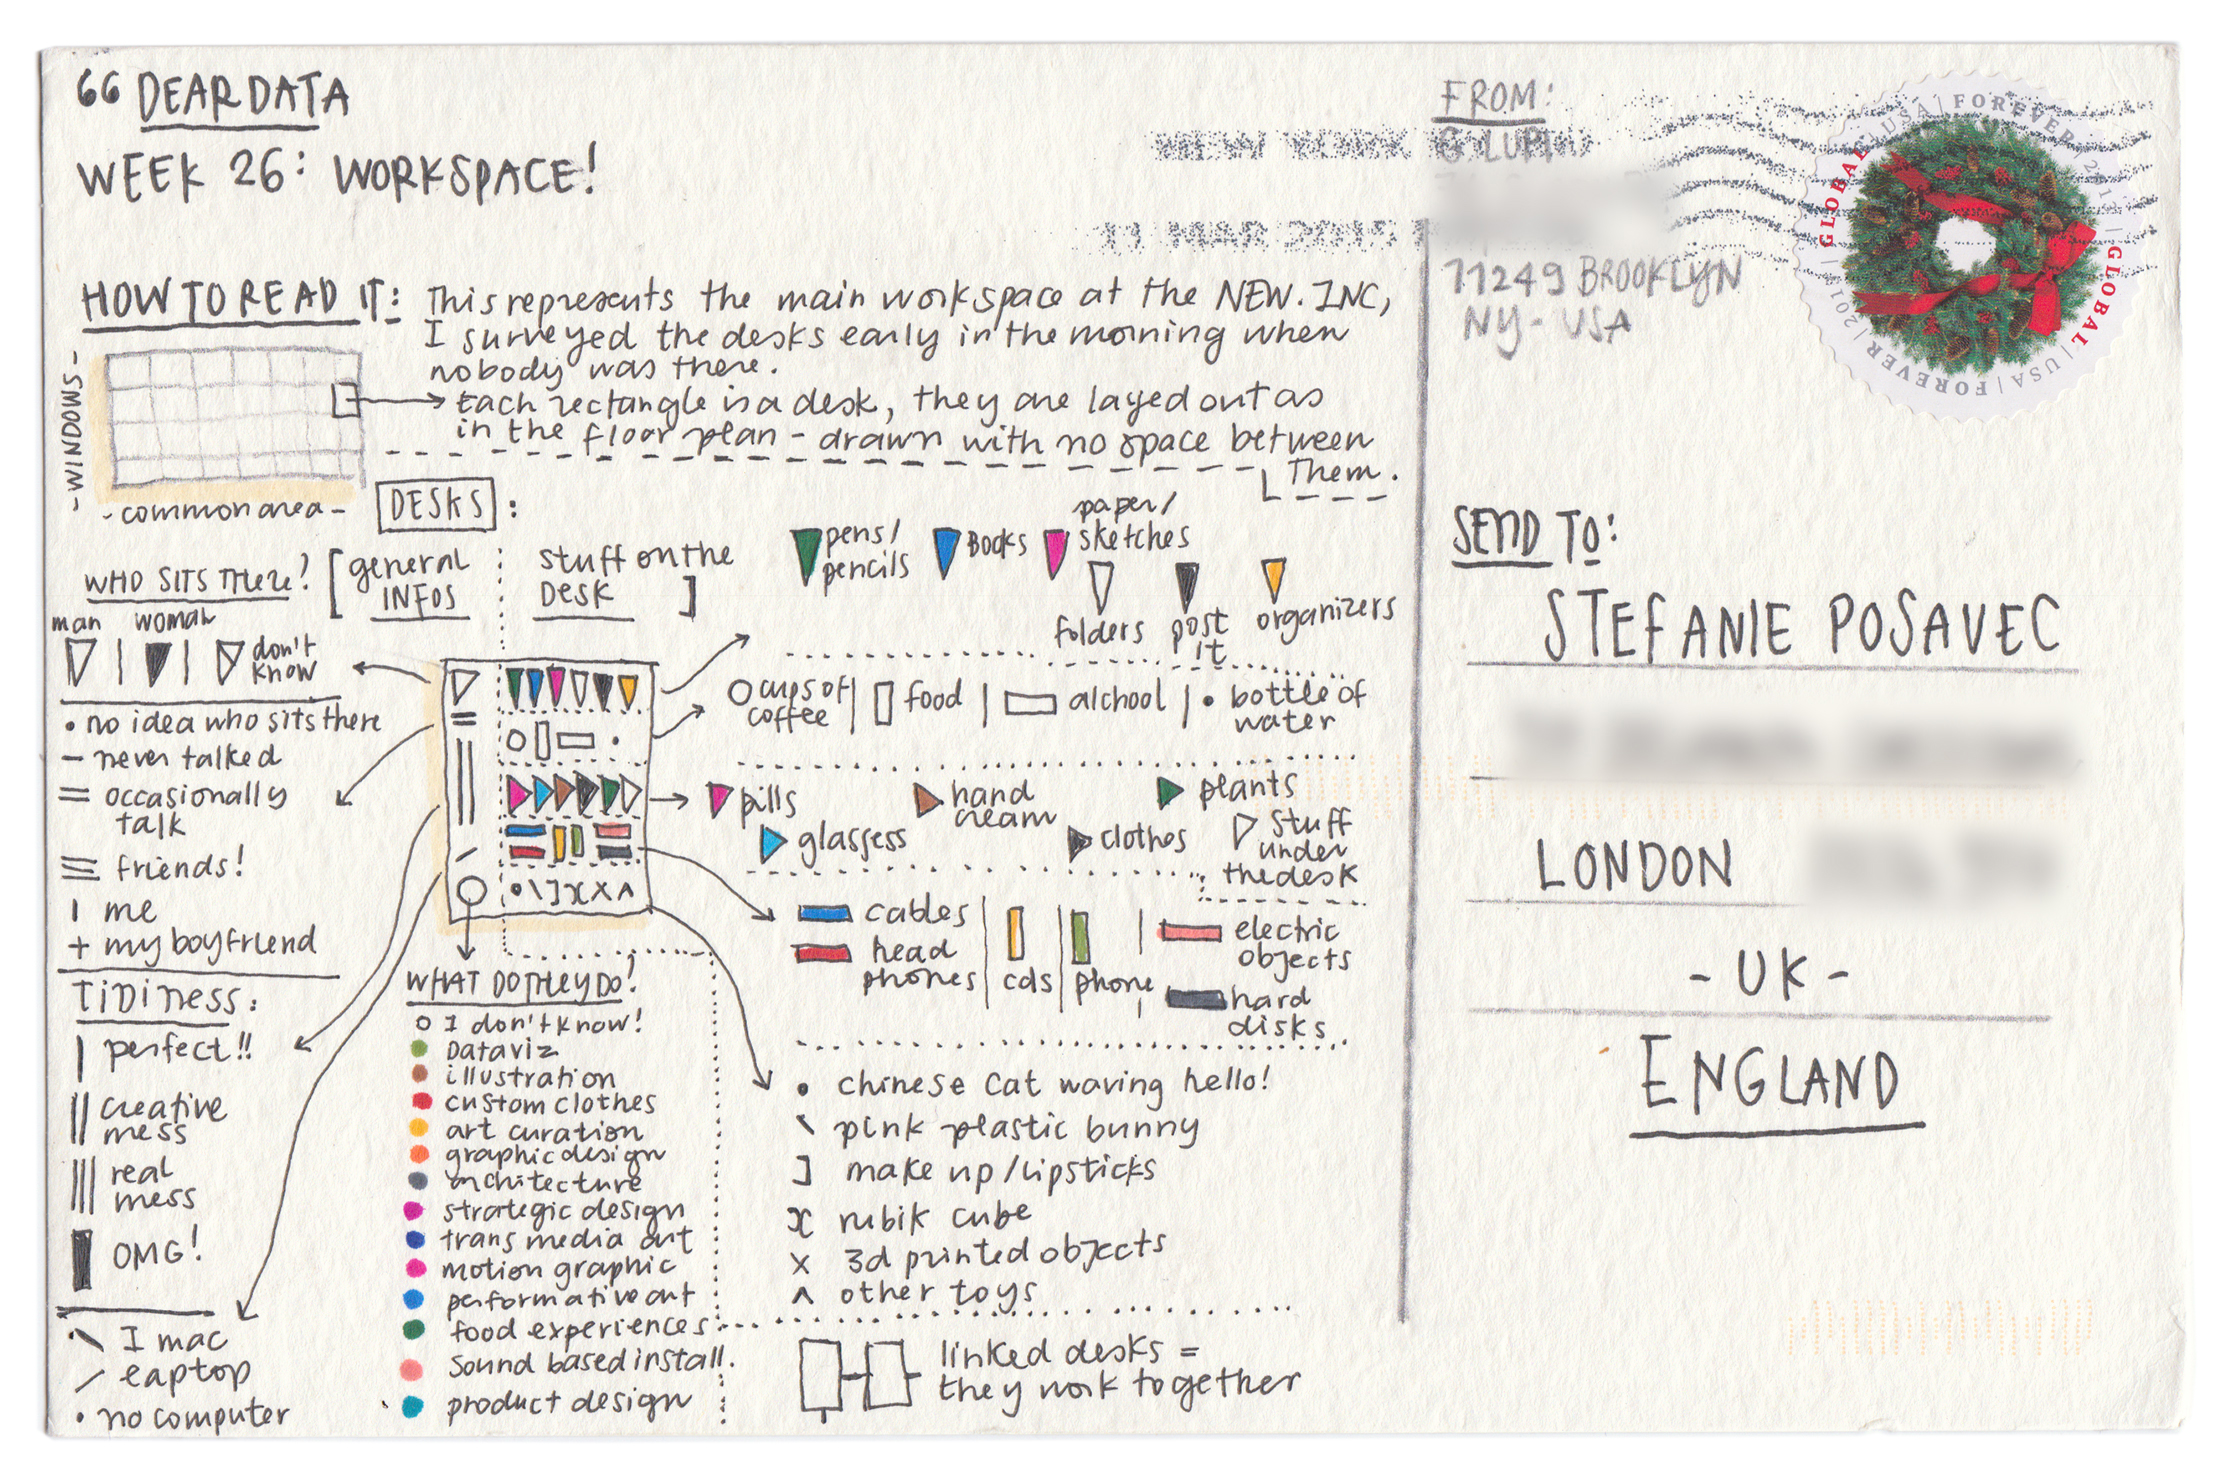 66 DEAR DATA
WEEK 26: WORKSPACE!
HOW TO READ IT:
This represents the main workspace at the NEW.INC,
I surveyed the desks early in the morning when
nobody was there.
Each rectangle is a desk, they are layed out as
in the floor plan - drawn with no space between
them.
- WINDOWS -
- common area -
DESKS :
[ general
INFOS
stuff on the
DESK ]
WHO SITS THERE?
man | woman | don't
know
• no idea who sits there
— never talked
= occasionally
talk
≡ friends!
I me
+ my boyfriend
TIDINESS:
| perfect!!
|| creative
mess
||| real
mess
OMG!
\ I mac
/ laptop
• no computer
WHAT DO THEY DO?
o I don't know!
Dataviz
illustration
custom clothes
art curation
graphic design
architecture
strategic design
trans media art
motion graphic
performative art
food experiences
Sound based install.
product design
pens/
pencils
BOOKS
paper/
sketches
folders
post
it
organizers
cups of
coffee
| food | alchool | • bottle of
water
pills
hand
cream
plants
glassess
clothes
stuff
under
the desk
cables
head
phones
cds
phone
electric
objects
hard
disks
• chinese cat waving hello!
\ pink plastic bunny
] make up/lipsticks
x rubik cube
x 3d printed objects
^ other toys
linked desks =
they work together
FROM:
G. LUPI
11249 BROOKLYN
NY - USA
NEW YORK
11 MAR 2015
GLOBAL | USA | FOREVER | 2013 | GLOBAL | USA | FOREVER | 2013 |
SEND TO:
STEFANIE POSAVEC
LONDON
- UK -
ENGLAND